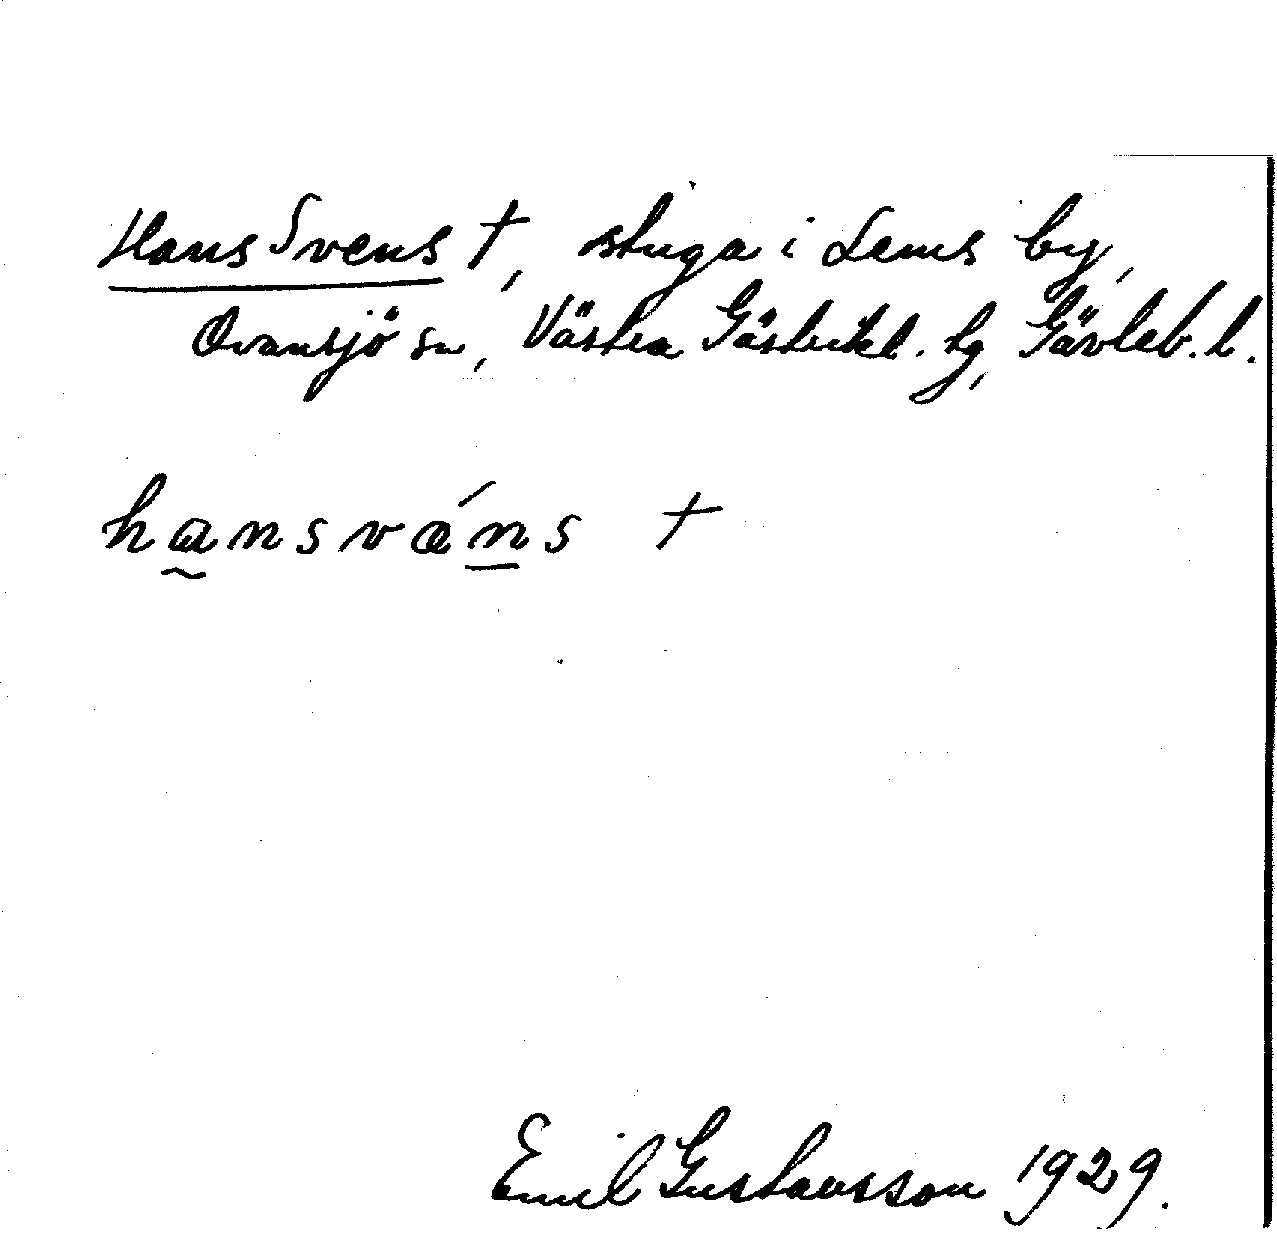 Hans Svens †, stuga i Lems by,
Ovansjö sn, Västra Gästrikl. tg, Gävleb. l.
hansvæ´ns †
Emil Gustavsson 1929.